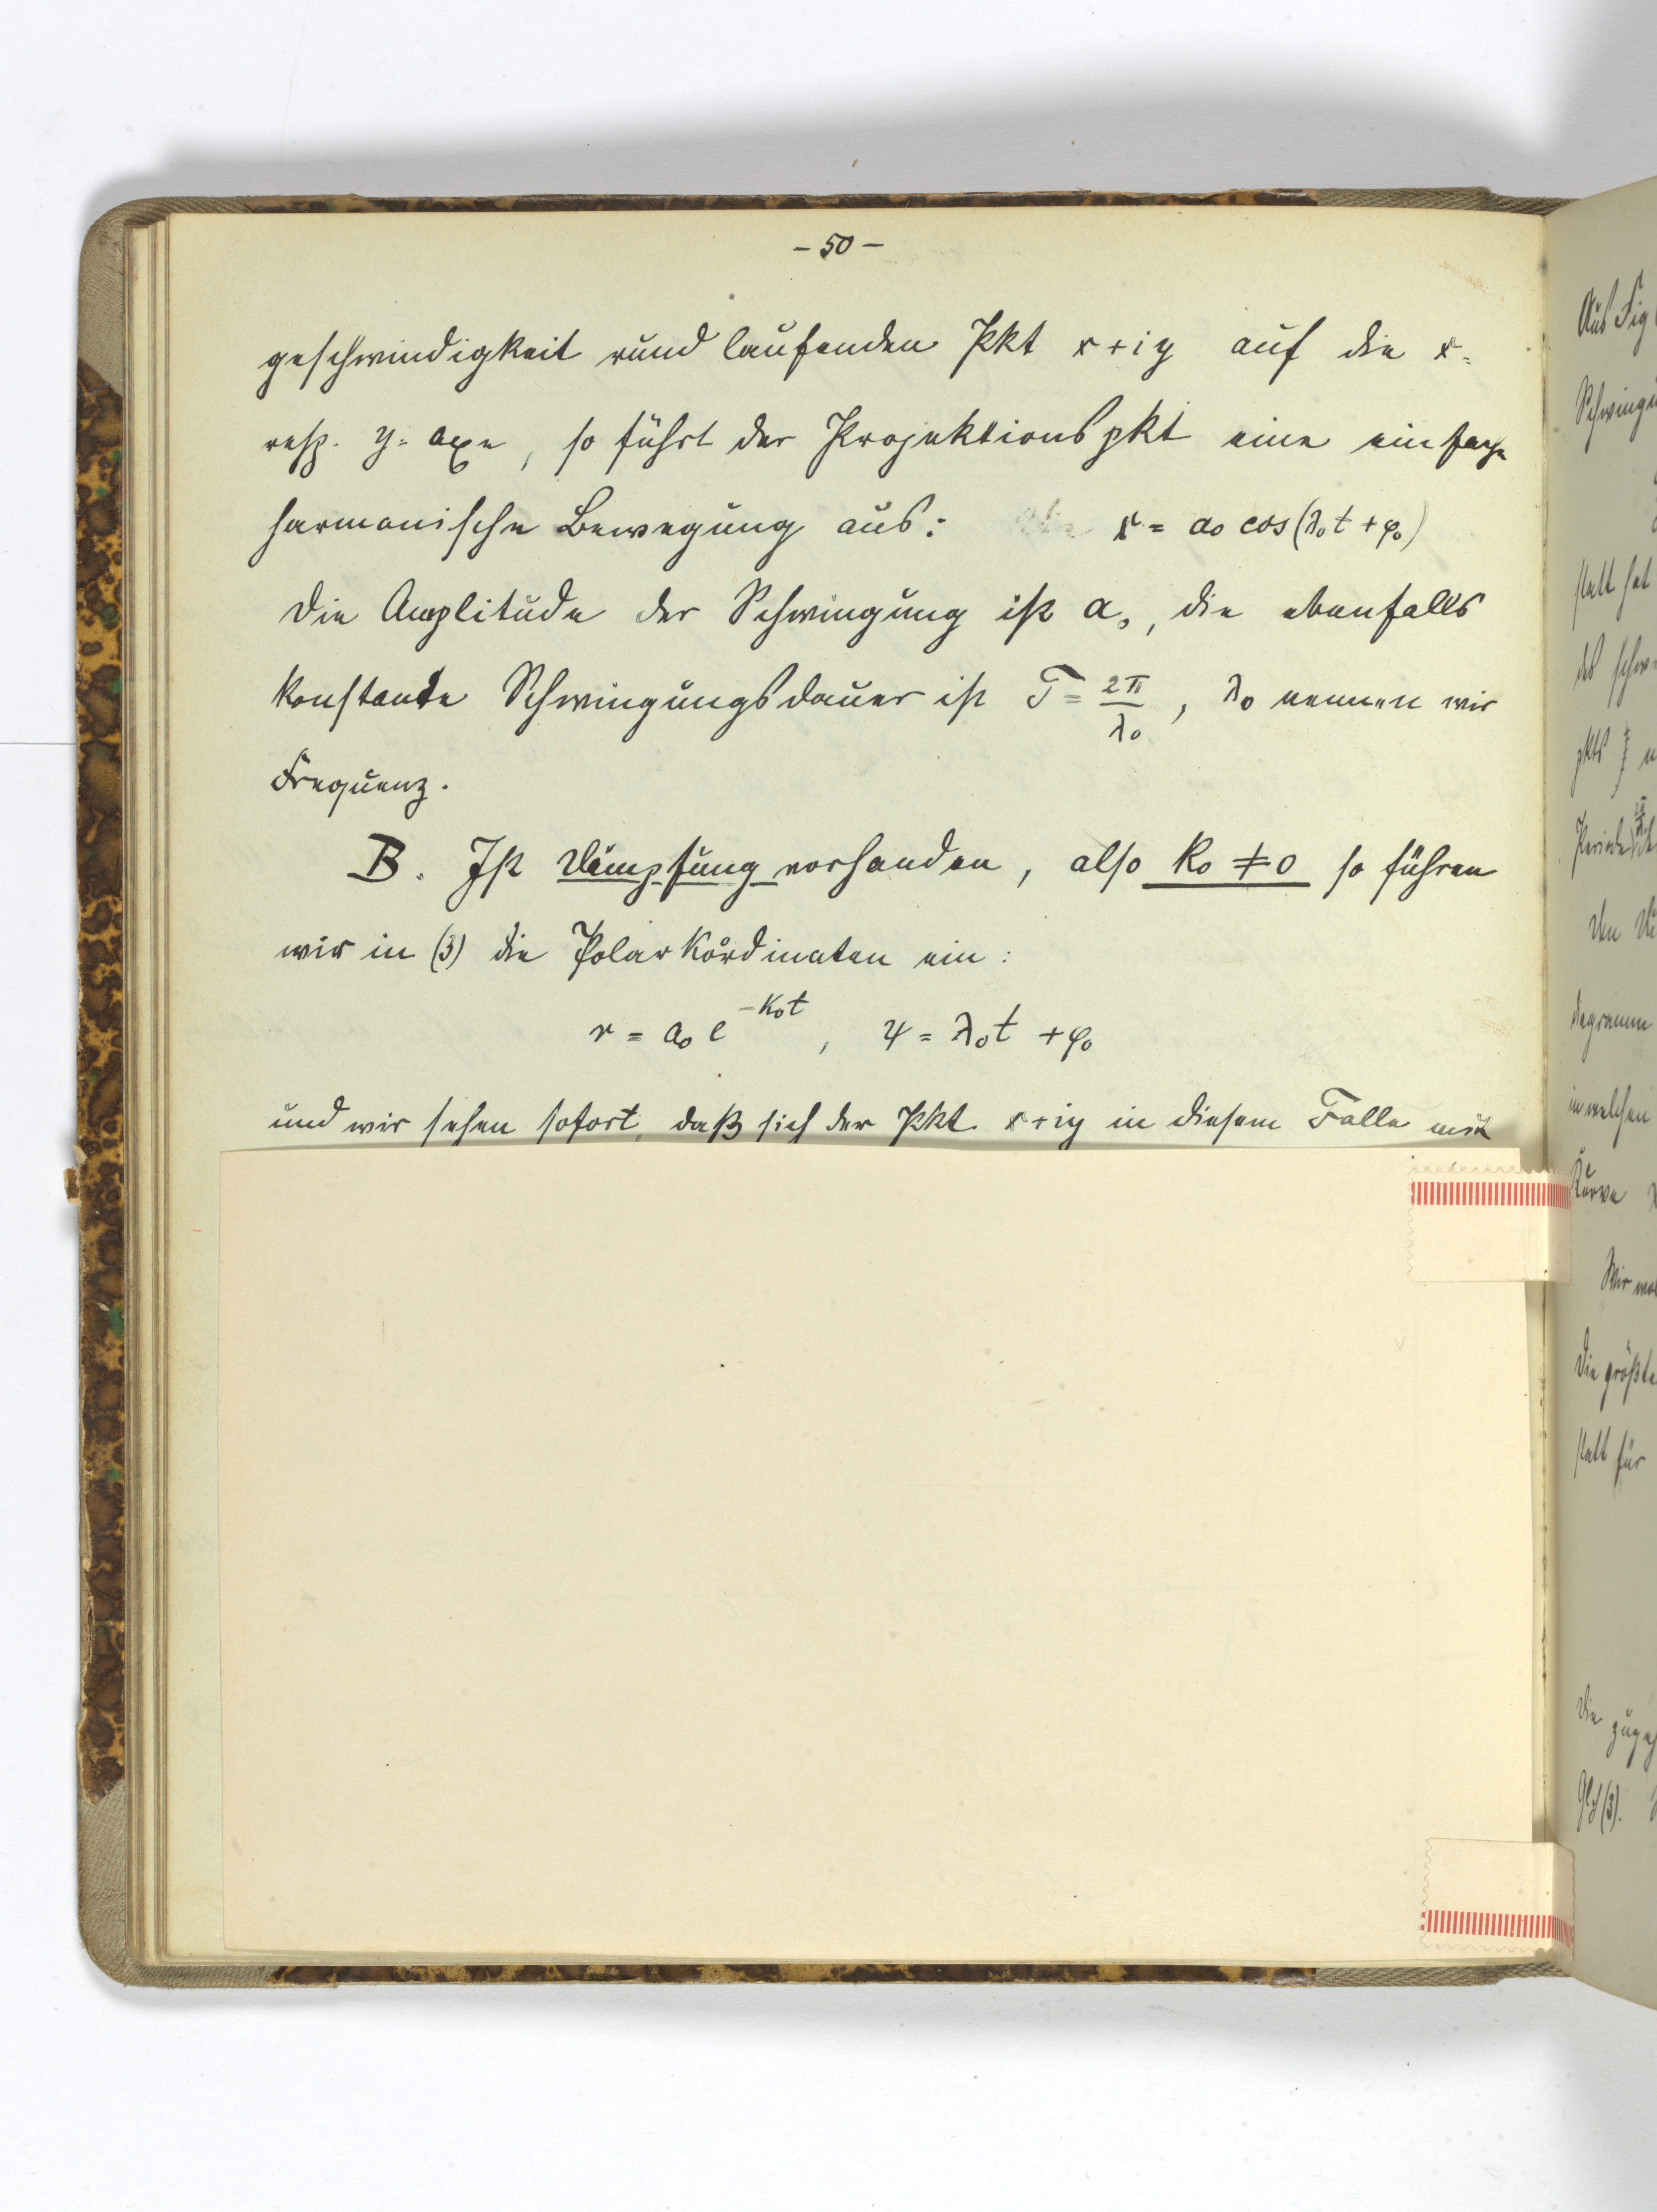 - 50 -
geschwindigkeit rund laufenden Pkt x + iy auf die x-
resp. y-axe, so führt der Projektionspkt eine einfache
harmonische Bewegung aus: x = a₀ cos(λ₀t + φ₀)
Die Amplitude der Schwingung ist a₀, die ebenfalls
konstante Schwingungsdauer ist T = 2π/λ₀, λ₀ nennen wir
Frequenz.
B. Ist Dämpfung vorhanden, also k₀ ≠ 0 so führen
wir in (3) die Polarkoordinaten ein:
r = a₀ e^(-k₀t), ψ = λ₀t + φ₀
und wir sehen sofort, daß sich der Pkt x + iy in diesem Falle mit
Aus Fig
statt hat
des
pkts
Periode
diagramm
in welchen
Kurve
Wir
Die größte
statt für
Die
(3).